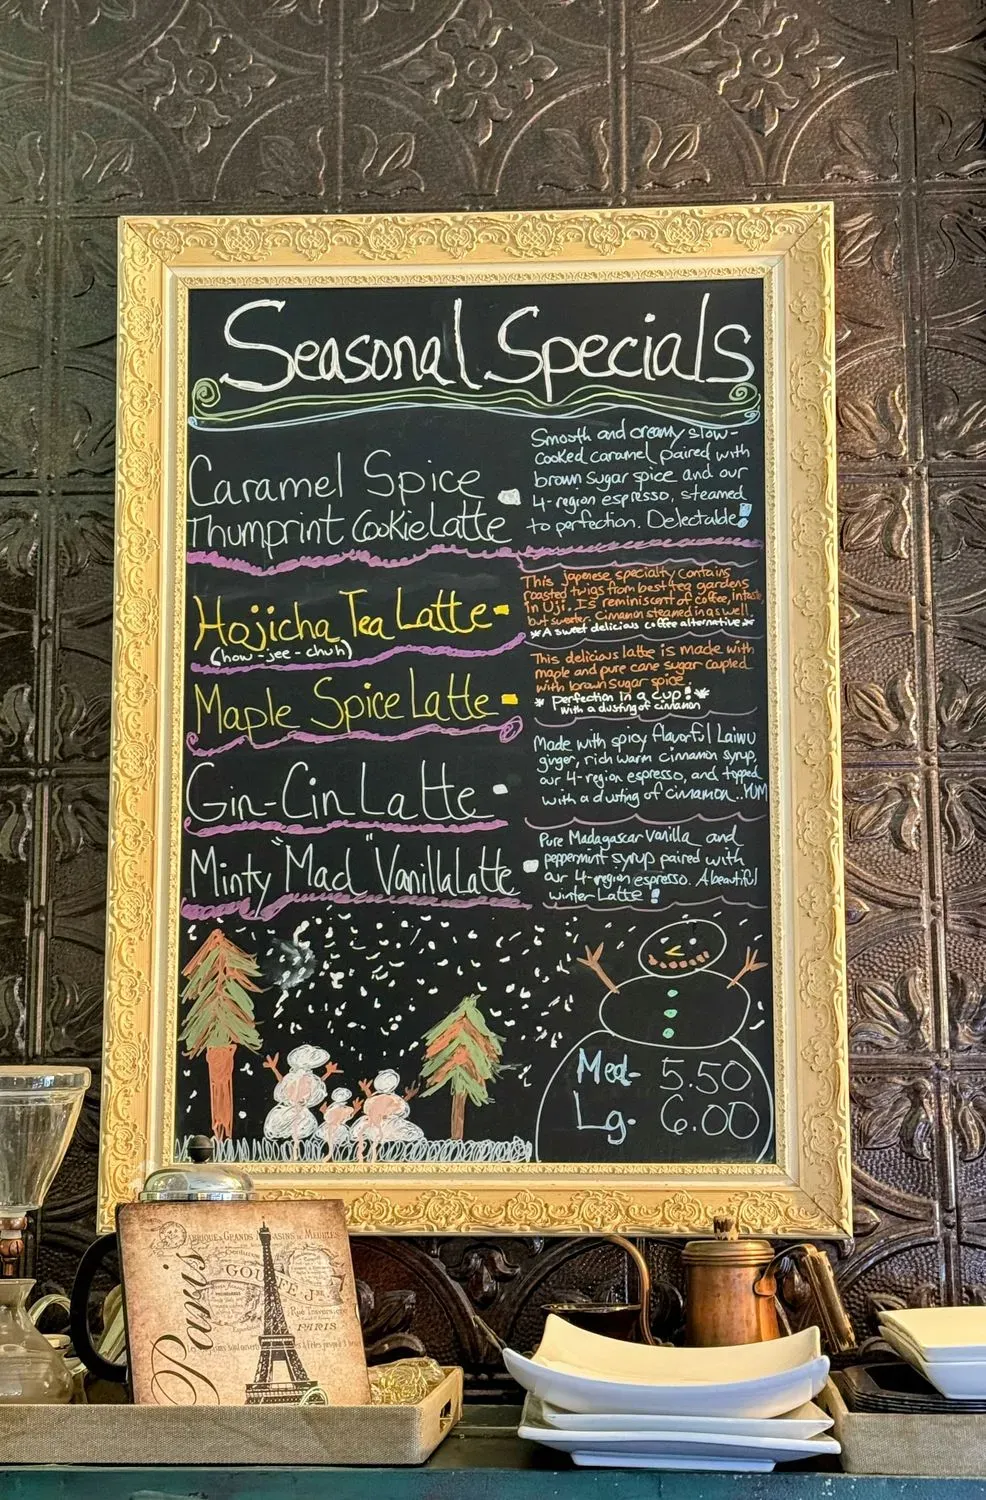 Seasonal Specials
Caramel Spice
Thumprint Cookie Latte
Smooth and creamy slow-
cooked caramel paired with
brown sugar spice and our
4-region espresso, steamed
to perfection. Delectable!
Hojicha Tea Latte
(how-jee-chuh)
This japenese specialty contains
roasted twigs from best tea gardens
in Uji. Is reminiscent of coffee, in taste
but sweeter. Cinnamon steamed in as well.
*A sweet delicious coffee alternative*
Maple Spice Latte
This delicious latte is made with
maple and pure cane sugar coupled
with brown sugar spice.
* Perfection in a cup! *
with a dusting of cinnamon
Gin-Cin Latte
Made with spicy flavorful Laiwu
ginger, rich warm cinnamon syrup,
our 4-region espresso, and topped
with a dusting of cinnamon..YUM
Minty "Mad" Vanilla Latte
Pure Madagascar Vanilla and
peppermint syrup paired with
our 4-region espresso. A beautiful
winter Latte!
Med- 5.50
Lg- 6.00
Paris
PARIS